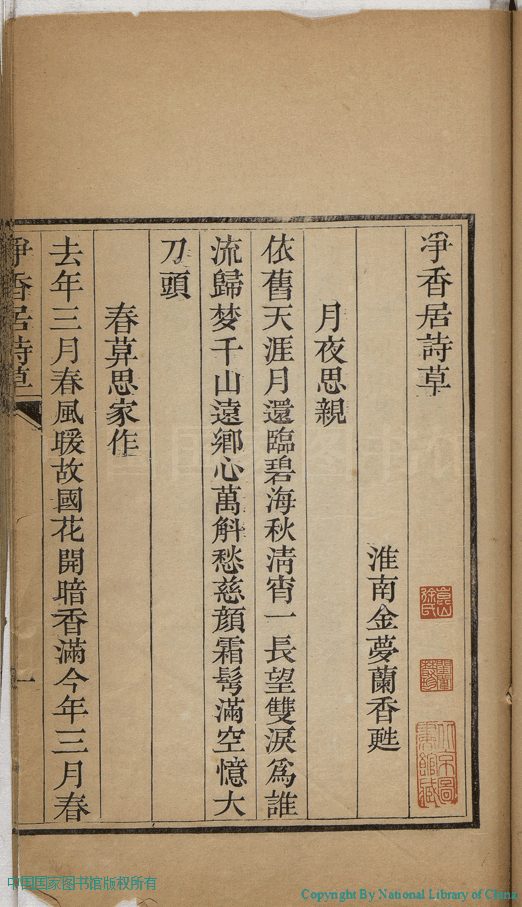 淨香居詩草
淮南金夢蘭香甦
月夜思親
依舊天涯月還臨碧海秋清宵一長望雙淚為誰
流歸梦千山遠鄉心萬斛愁慈顏霜髩滿空憶大
刀頭
春莫思家作
去年三月春風暖故國花開暗香滿今年三月春
淨香居詩草
一
中国国家图书馆版权所有
Copyright By National Library of China